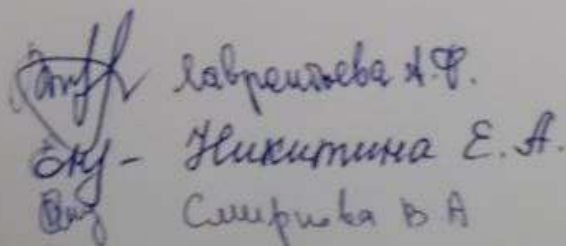 Лаврентьева А.Ф.
Никитина Е.А.
Смирнова В А